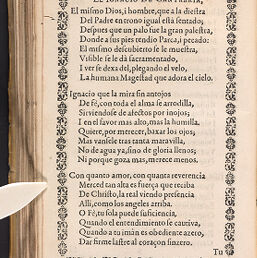 El mismo Dios, i hombre, que a la diestra
Del Padre en trono igual està sentado,
Despues que en palo fue la gran palestra,
Donde a sus pies rendio Parca, i pecado:
El mismo descubierto se le muestra,
Visible se le da sacramentado,
I ver se dexa del, plegando el velo,
La humana Magestad que adora el cielo.
Ignacio que la mira sin antojos
De fé, con toda el alma se arrodilla,
Sirviendose de afectos por inojos;
I en el favor mas alto, mas la humilla.
Quiere, por merecer, baxar los ojos;
Mas vansele tras tanta maravilla,
No de agua ya, sino de gloria llenos;
Ni porque goza mas, merece menos.
Con quanto amor, con quanta reverencia
Merced tan alta es fuerça que reciba
De Christo, la real viendo presencia
Alli, como los angeles arriba.
O Fé, tu sola puede suficiencia,
Quando el entendimiento se cautiva,
Quando a tu imàn es obediente azero,
Dar firme lastre al coraçon sinzero.
Tu